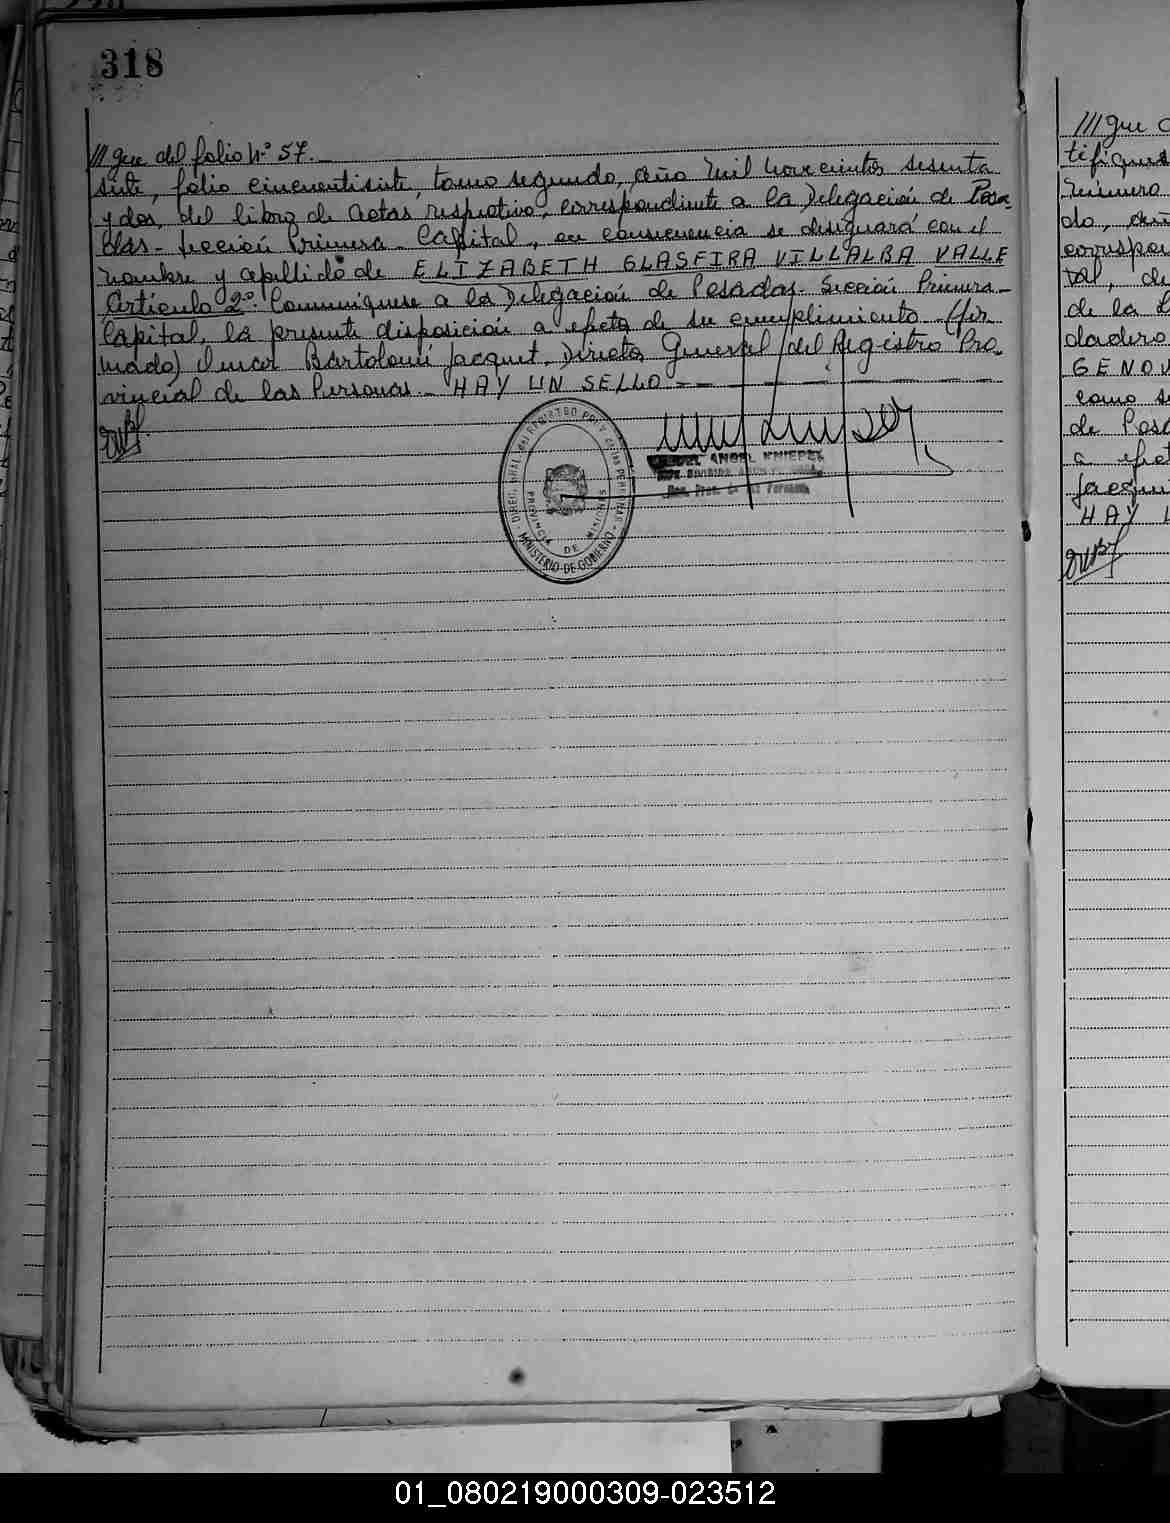 318
/// que del folio Nº 57.
siete, folio cincuentisiete, tomo segundo, año mil novecientos sesenta
y dos, del libro de actas respectivo, correspondiente a la Delegación de Posa-
das - Sección Primera - Capital, en consecuencia se designará con el
nombre y apellido de ELIZABETH GLASFIRA VILLALBA VALLE
Artículo 2º: Comuníquese a la Delegación de Posadas - Sección Primera -
Capital, la presente disposición a efecto de su cumplimiento - (fir
mado) Omar Bartolomé Jacquet, Director General del Registro Pro-
vincial de las Personas - HAY UN SELLO -
DIREC. GRAL. del REGISTRO PROV. de las PERSONAS
PROVINCIA DE MISIONES
MINISTERIO DE GOBIERNO
MIGUEL ANGEL KNIEPEL
/// que
tifiques
número
do,
correspo
tal, de
de la
dadero
GENOV
como se
de Posa
a efect
Jacque
HAY U
01_080219000309-023512